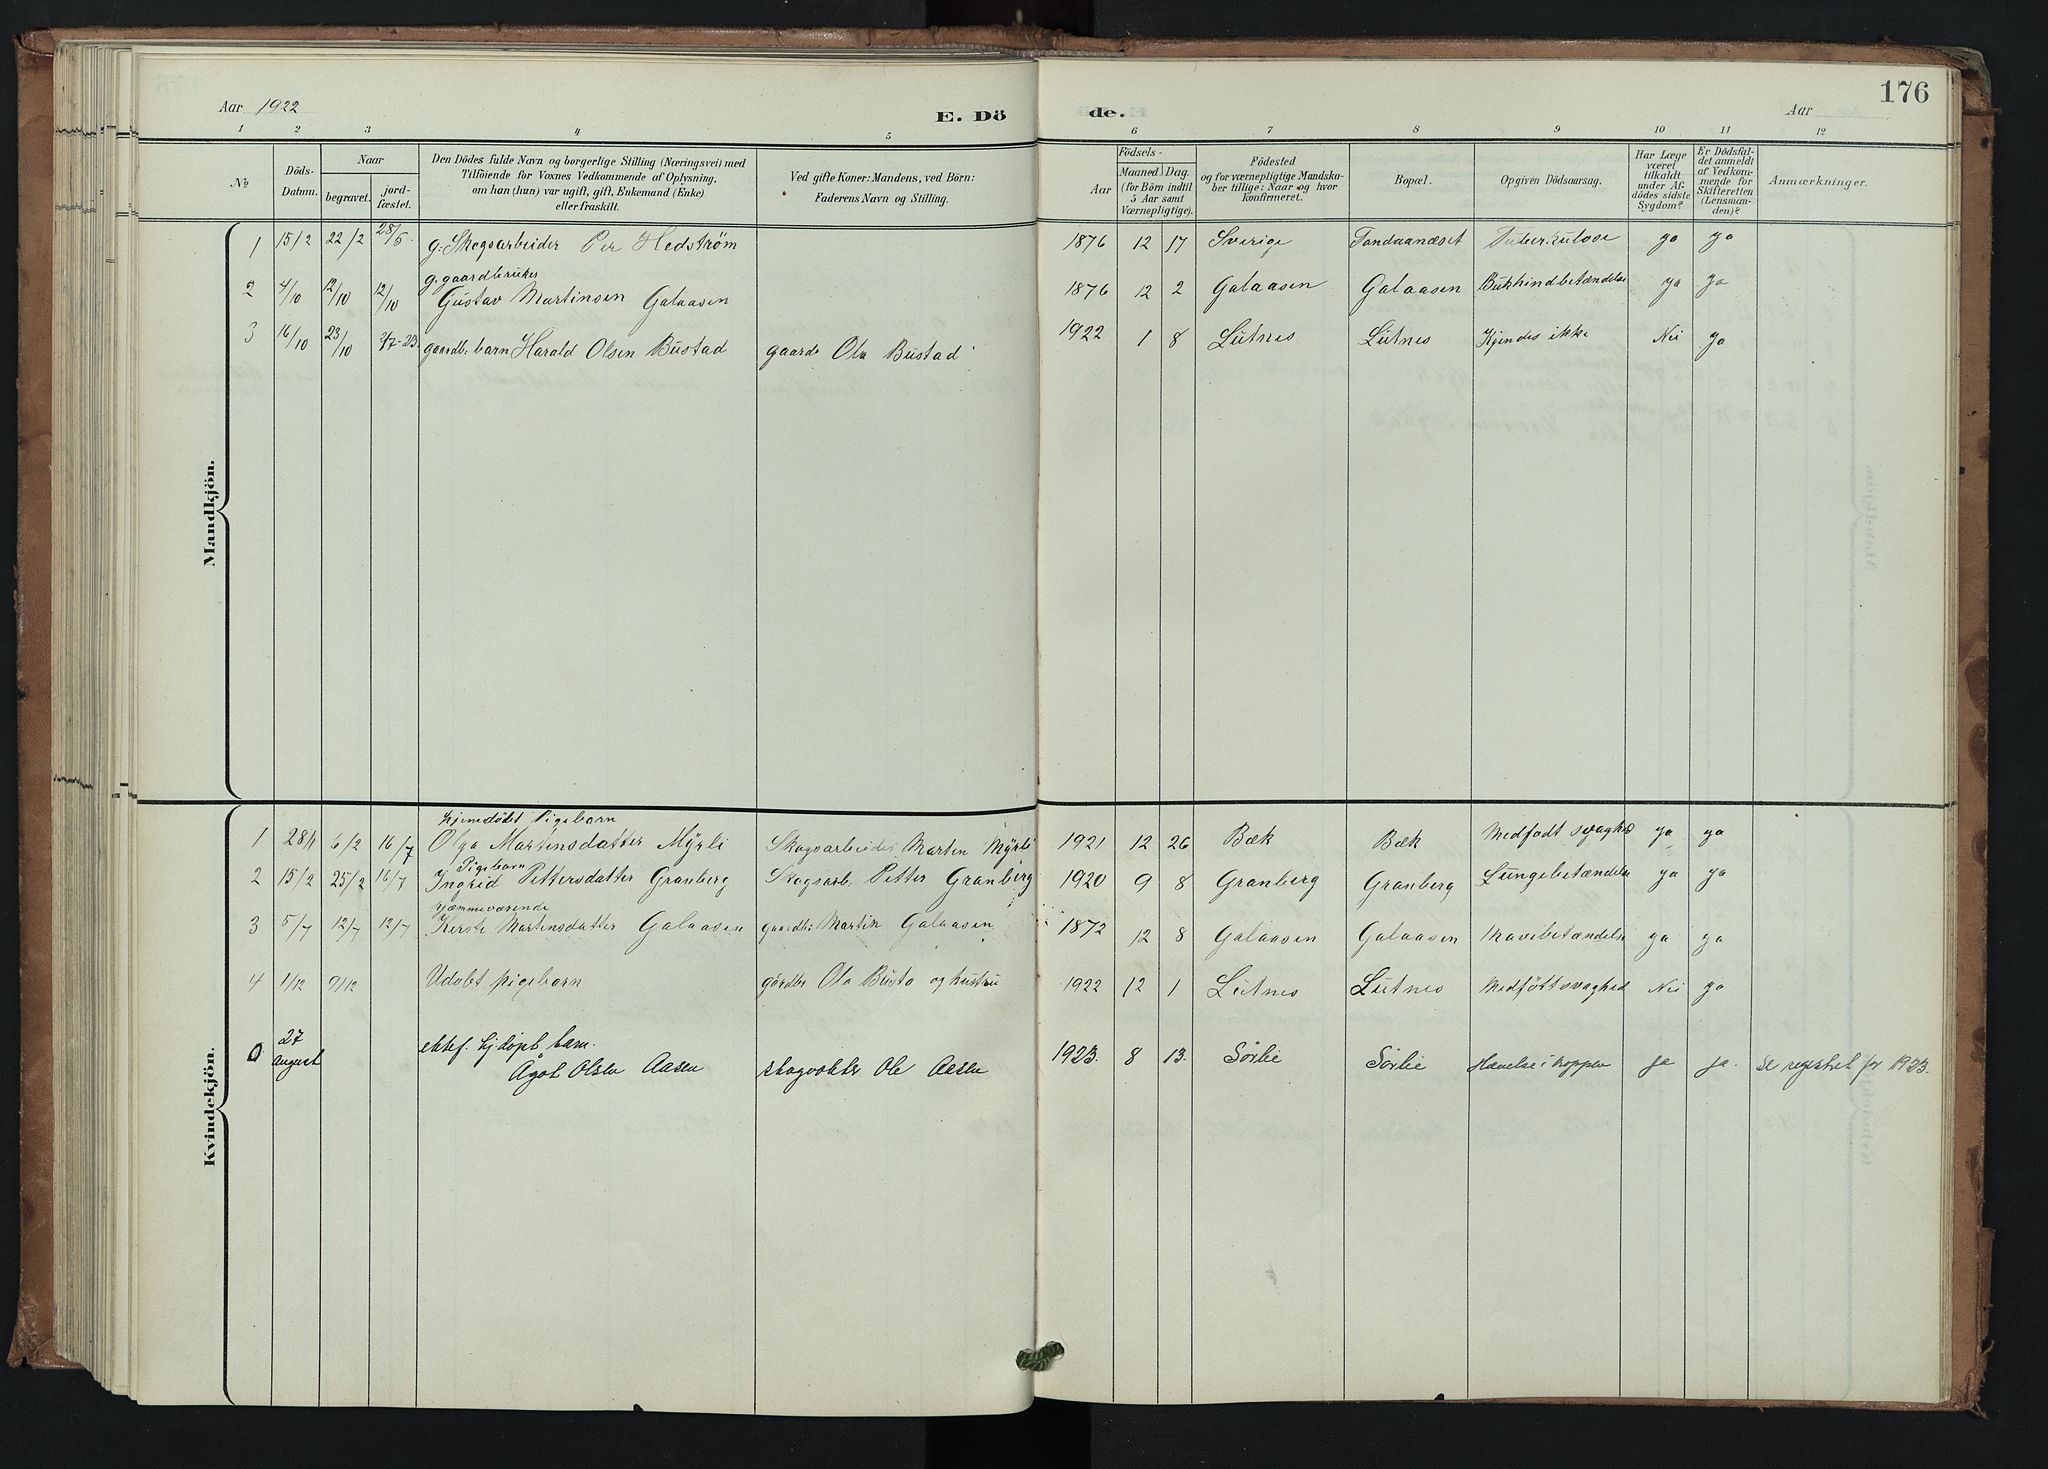 Aar 1922
E. Dö
de.
Aar
176
1 2 3 4 5 6 7 8 9 10 11 12
№
Döds-
Datum.
Naar
begravet.
jord-
fæstet.
Den Dödes fulde Navn og borgerlige Stilling (Næringsvei) med
Tilföiende for Voxnes Vedkommende af Oplysning,
om han (hun) var ugift, gift, Enkemand (Enke)
eller fraskilt.
Ved gifte Koner: Mandens, ved Börn:
Faderens Navn og Stilling.
Födsels-
Aar
Maaned
(for Börn indtil
5 Aar samt
Værnepligtige).
Dag.
Födested
og for værnepligtige Mandska-
ber tillige: Naar og hvor
konfirmeret.
Bopæl.
Opgiven Dödsaarsag.
Har Læge
været
tilkaldt
under Af-
dödes sidste
Sygdom?
Er Dödsfal-
det anmeldt
af Vedkom-
mende for
Skifteretten
(Lensman-
den)?
Anmærkninger.
Mandkjön.
1 15/2 22/2 28/5 g. Skogsarbeider Per Hedstrøm 1876 12 17 Sverige Tandaanæset Tuberkulose ja ja
g. gaardbruker
2 4/10 12/10 12/10 Gustav Martinsen Galaasen 1876 12 2 Galaasen Galaasen Bukhindbetændelse ja ja
3 16/10 23/10 2/7-23 gaardb. barn Harald Olsen Bustad gaardb Ola Bustad 1922 1 8 Lutnes Lutnes Kjendes ikke Nei ja
Kvindekjön.
hjemdöbt Pigebarn
1 28/1 6/2 16/7 Olga Martinsdatter Myrli Skogsarbeider Marten Myrli 1921 12 26 Bæk Bæk Medfødt svaghed ja ja
Pigebarn
2 15/2 25/2 16/7 Ingrid Pettersdatter Granberg Skogsarb. Petter Granberg 1920 9 8 Granberg Granberg Lungebetændelse ja ja
hjæmmeværende
3 5/7 12/7 12/7 Kerste Martensdatter Galaasen gaardbr Martin Galaasen 1872 12 8 Galaasen Galaasen Mavebetændelse ja ja
4 1/12 9/12 Udöbt pigebarn gårdbr Ola Busta og hustru 1922 12 1 Lutnes Lutnes Medføtt svaghed Nei ja
0 27 august ektef. hj.døpt barn.
Ågot Olsen Aasen skogvokter Ole Aasen 1923. 8 13. Sørlie Sørlie Hævelse i kroppen ja ja. se registret for 1923.